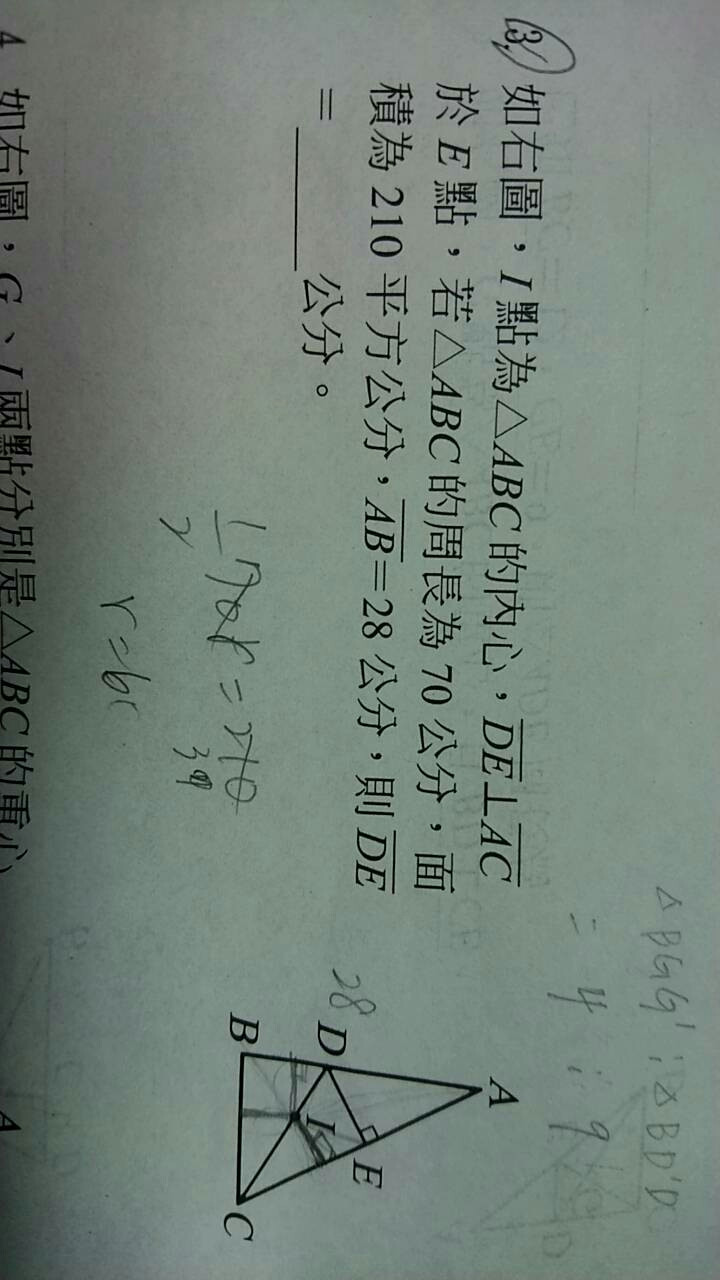 3. 如右圖，I 點為△ABC 的內心，DE⊥AC
於 E 點，若△ABC 的周長為 70 公分，面
積為 210 平方公分，AB=28 公分，則 DE
= ______ 公分。
A
D
E
I
B
C
28
△BGG' : △BD'D
= 4 : 9
4 如右圖，G、I 兩點分別是△ABC 的重心
A